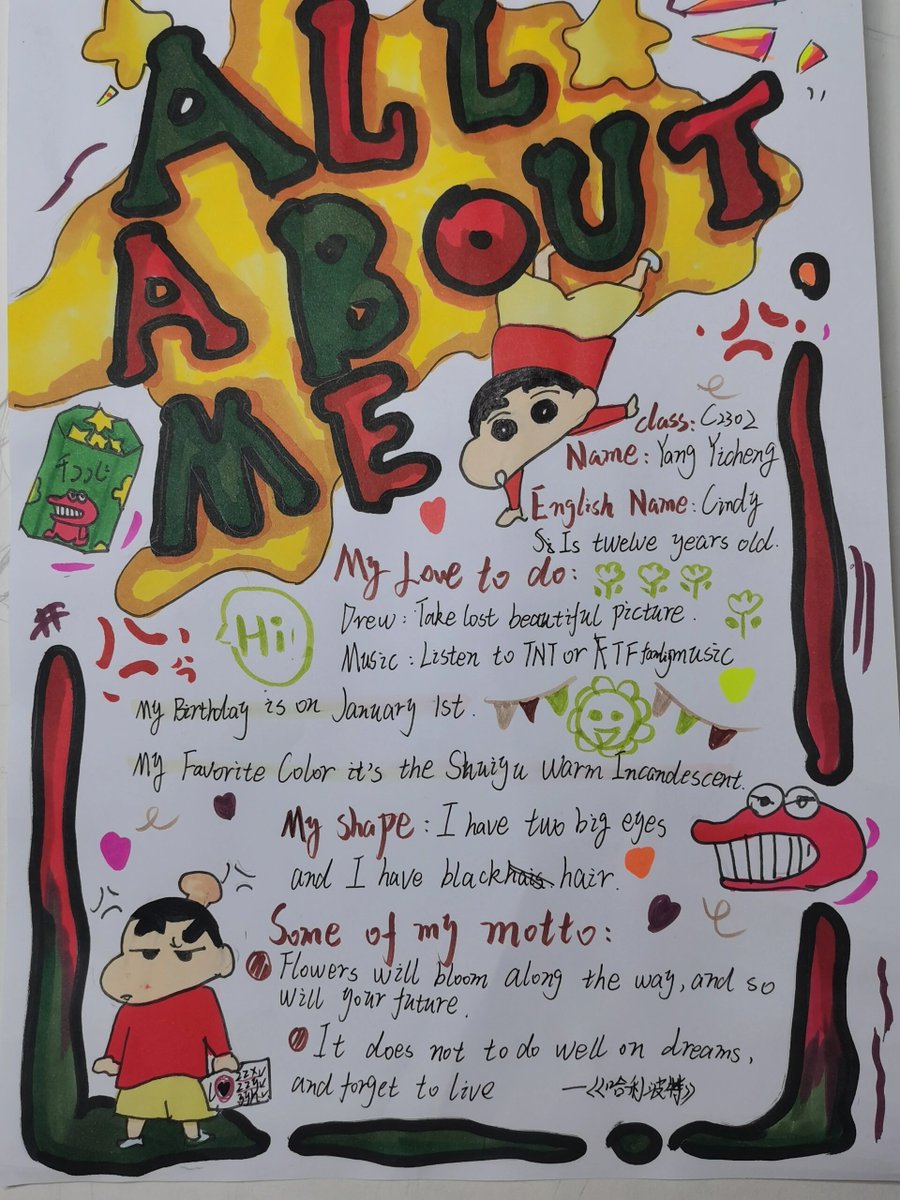 ALL
ABOUT
ME
class: C2302
Name: Yang Yicheng
English Name: Cindy
Is twelve years old.
My Love to do:
Drew: Take lost beautiful picture.
Hi
Music: Listen to TNT or TF music
My Birthday is on January 1st.
My Favorite Color it's the Shuiyu Warm Incandescent.
My shape: I have two big eyes
and I have black hair.
Some of my motto:
Flowers will bloom along the way, and so
will your future.
It does not to do well on dreams,
and forget to live —《哈利波特》